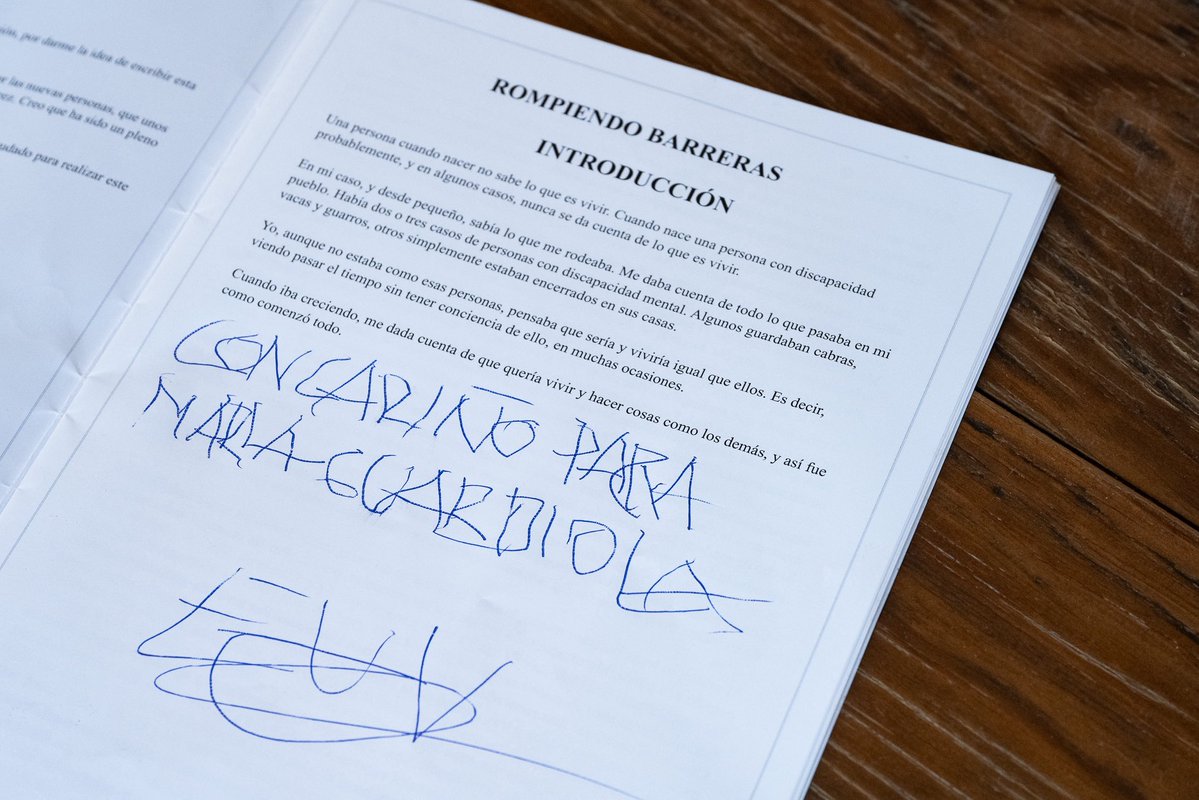 ión, por darme la idea de escribir esta
or las nuevas personas, que unos
ez. Creo que ha sido un pleno
udado para realizar este
ROMPIENDO BARRERAS
INTRODUCCIÓN
Una persona cuando nacer no sabe lo que es vivir. Cuando nace una persona con discapacidad
probablemente, y en algunos casos, nunca se da cuenta de lo que es vivir.
En mi caso, y desde pequeño, sabía lo que me rodeaba. Me daba cuenta de todo lo que pasaba en mi
pueblo. Había dos o tres casos de personas con discapacidad mental. Algunos guardaban cabras,
vacas y guarros, otros simplemente estaban encerrados en sus casas.
Yo, aunque no estaba como esas personas, pensaba que sería y viviría igual que ellos. Es decir,
viendo pasar el tiempo sin tener conciencia de ello, en muchas ocasiones.
Cuando iba creciendo, me dada cuenta de que quería vivir y hacer cosas como los demás, y así fue
como comenzó todo.
CON CARIÑO PARA
MARIA GUARDIOLA